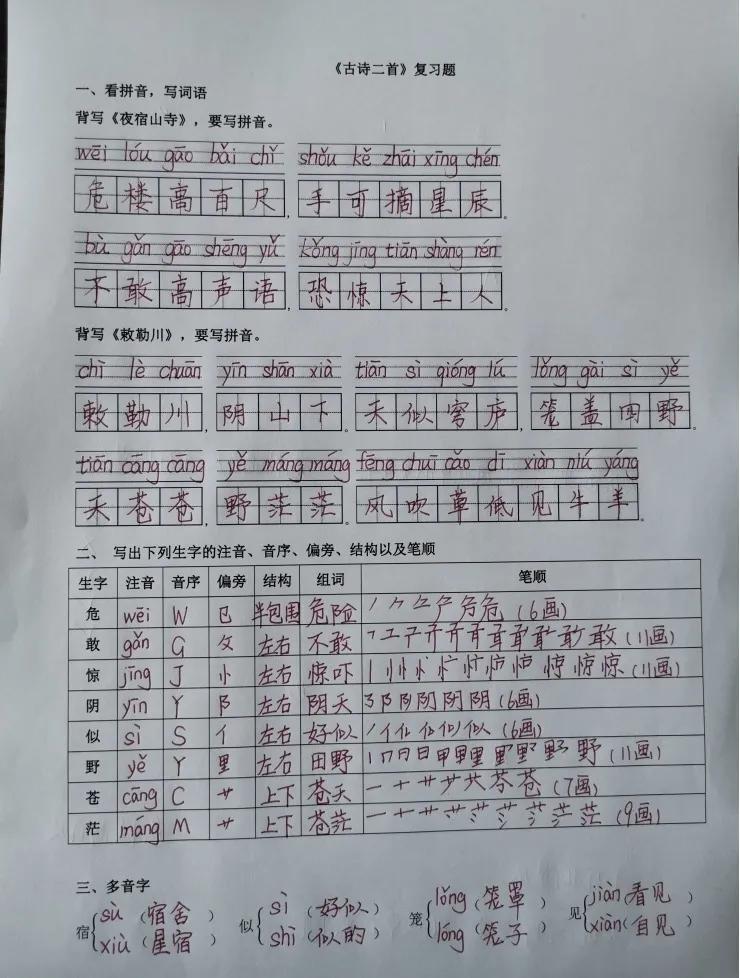 《古诗二首》复习题
一、看拼音，写词语
背写《夜宿山寺》，要写拼音。
wēi lóu gāo bǎi chǐ shǒu kě zhāi xīng chén
危楼高百尺，手可摘星辰。
bù gǎn gāo shēng yǔ kǒng jīng tiān shàng rén
不敢高声语，恐惊天上人。
背写《敕勒川》，要写拼音。
chì lè chuān yīn shān xià tiān sì qióng lú lǒng gài sì yě
敕勒川，阴山下。天似穹庐，笼盖四野。
tiān cāng cāng yě máng máng fēng chuī cǎo dī xiàn niú yáng
天苍苍，野茫茫。风吹草低见牛羊。
二、 写出下列生字的注音、音序、偏旁、结构以及笔顺
生字 注音 音序 偏旁 结构 组词 笔顺
危 wēi W 㔾 半包围 危险 (6画)
敢 gǎn G 攵 左右 不敢 (11画)
惊 jīng J 忄 左右 惊吓 (11画)
阴 yīn Y 阝 左右 阴天 (6画)
似 sì S 亻 左右 好似 (6画)
野 yě Y 里 左右 田野 (11画)
苍 cāng C 艹 上下 苍天 (7画)
茫 máng M 艹 上下 苍茫 (9画)
三、多音字
宿 sù (宿舍) xiù (星宿) 似 sì (好似) shì (似的) 笼 lǒng (笼罩) lóng (笼子) 见 jiàn (看见) xiàn (自见)